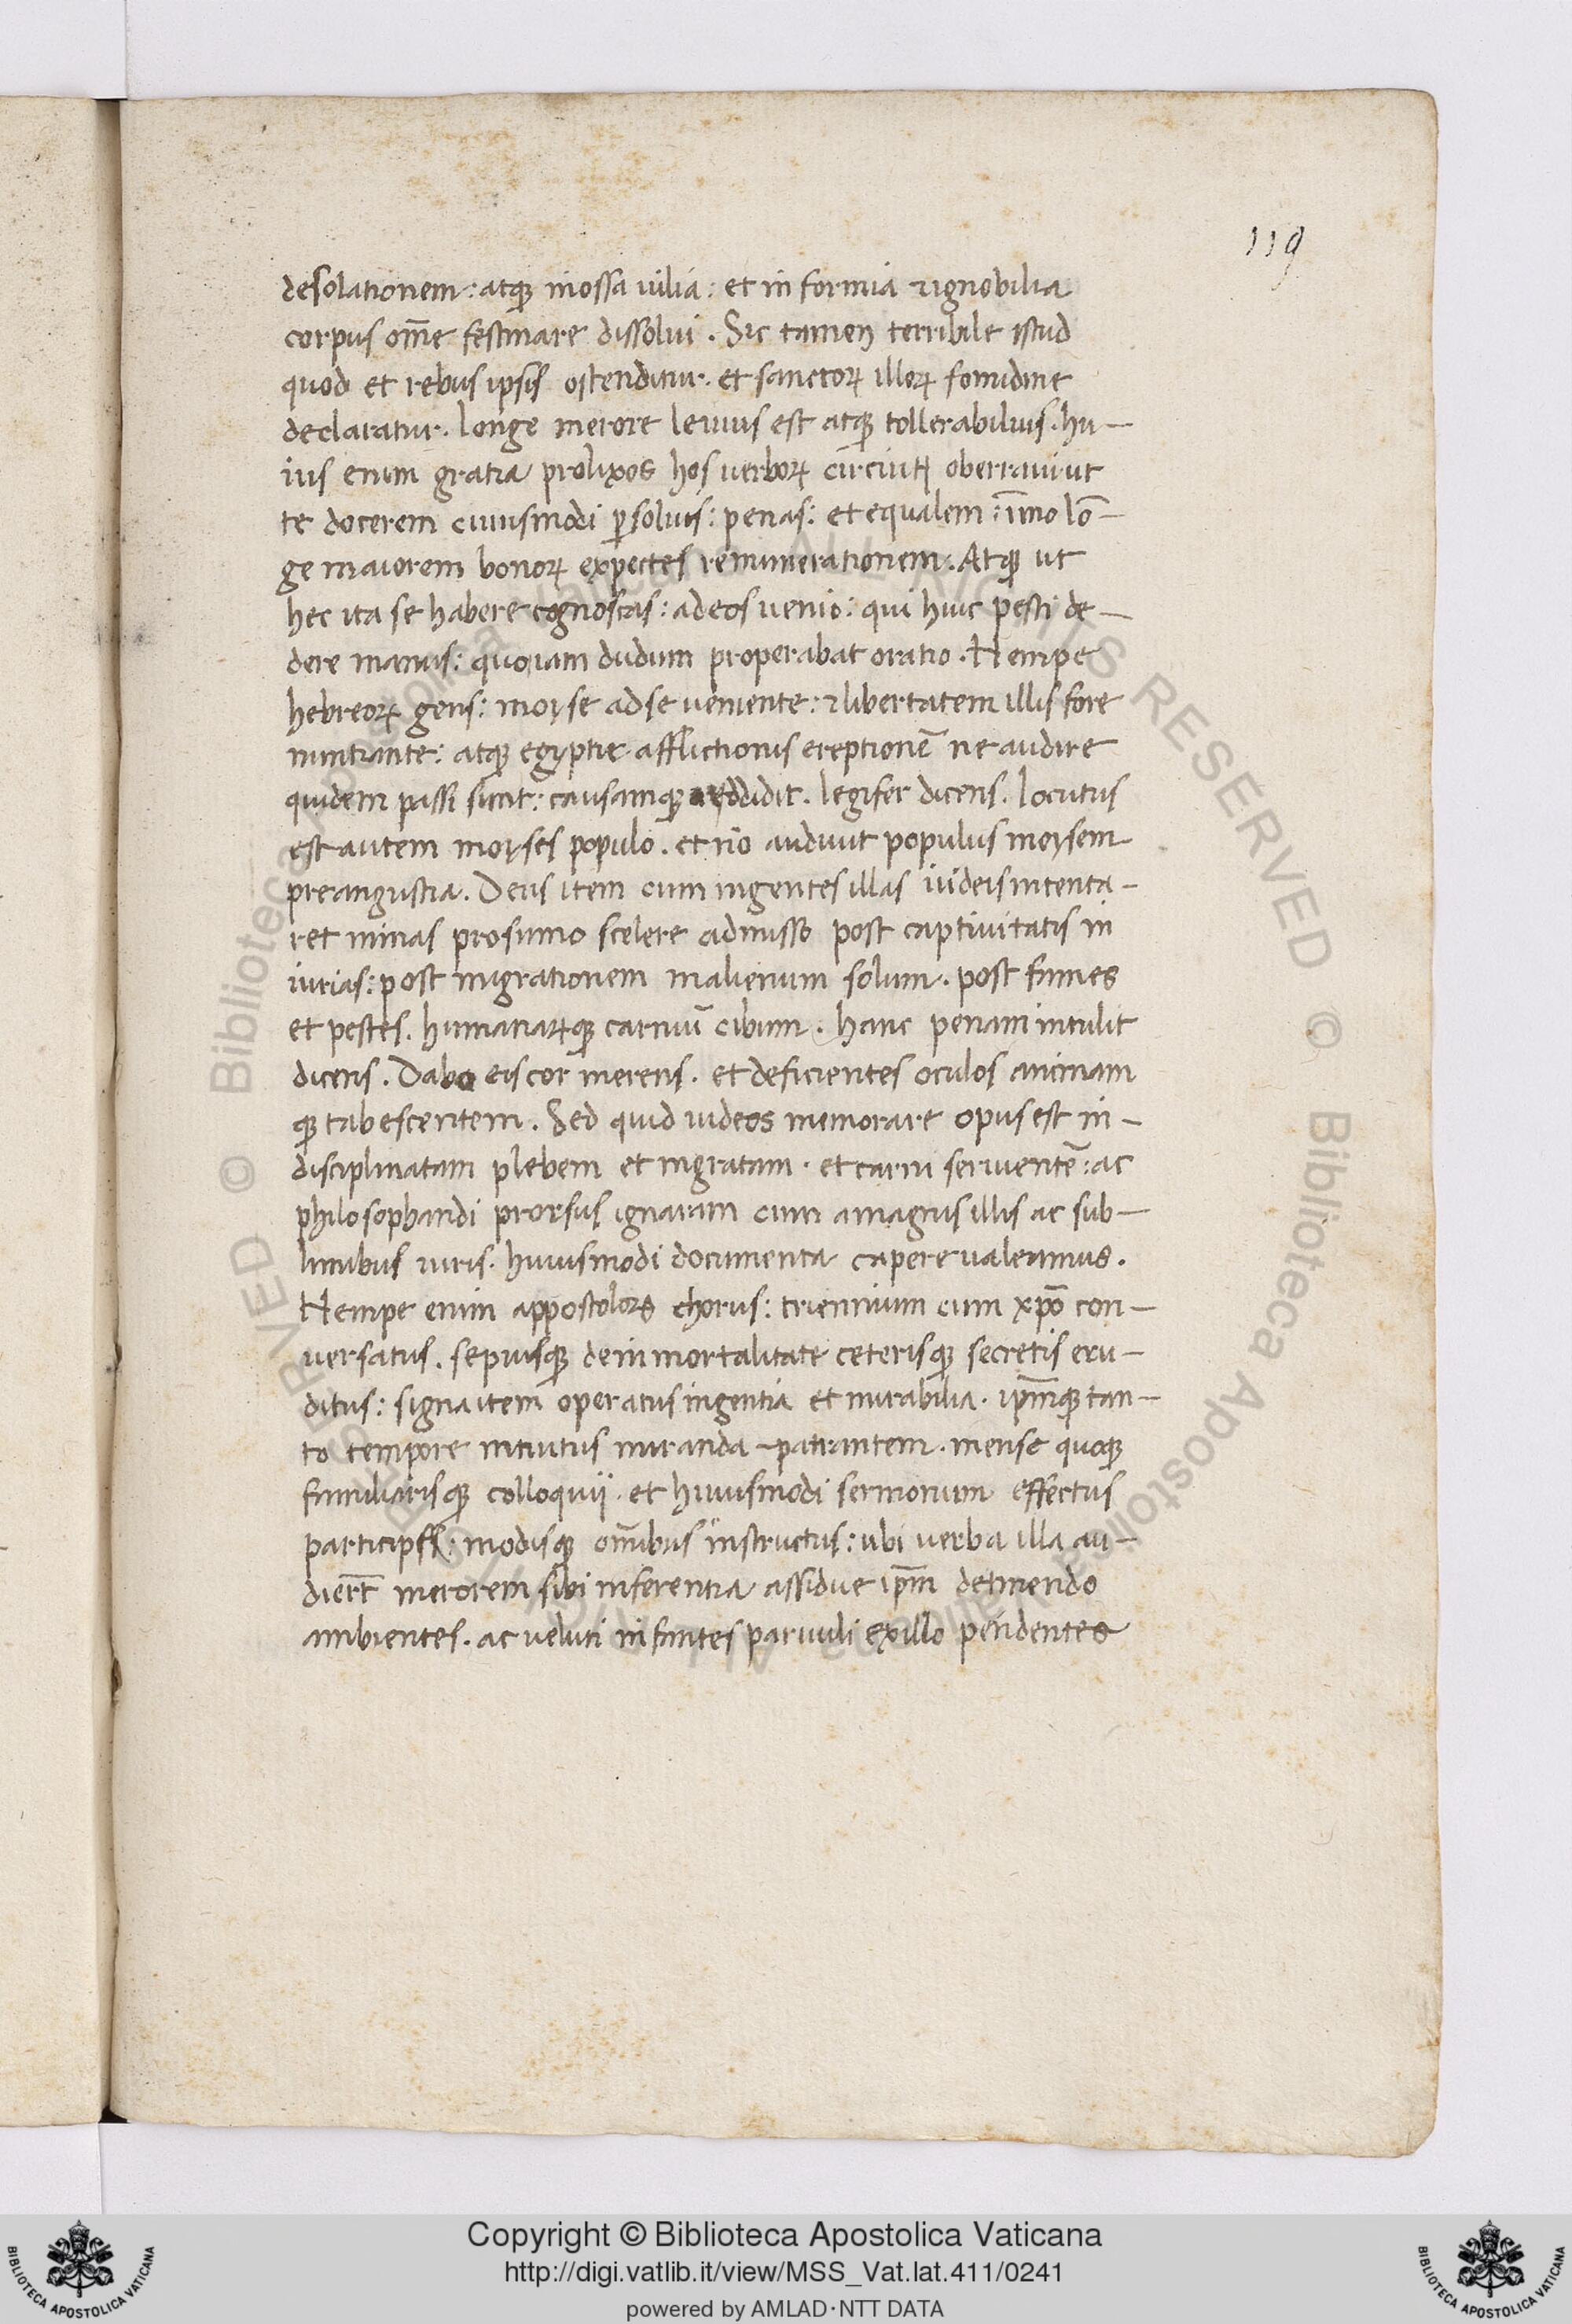 119
desolationem: atqꝫ inossa uilia: et informia ⁊ignobilia
corpus om̄e festinare dissolui. Sic tamen terribile istud
quod et rebus ipsis ostenditur. et sanctoꝝ illoꝝ fomidine
declaratur. longe merore leuius est atqꝫ tollerabilius. hu-
ius enim gratia prolixos hos uerboꝝ circuitꝰ oberraui ut
te docerem cuiusmodi ꝑsoluis: penas: et equalem: īmo lō-
ge maiorem bonoꝝ expectes remunerationem. Atqꝫ ut
hec ita se habere cognoscas: adeos uenio: qui huic pesti de-
dere manus: quo iam dudum properabat oratio. Nempe
hebreoꝝ gens: moyse adse ueniente: ⁊libertatem illis fore
nuntiante: atqꝫ egyptie afflictionis ereptionē ne audire
quidem passi sunt: causamqꝫ reddidit. legifer dicens. locutus
est autem moyses populo. et nō audiuit populus moysem
preangustia. Deus item cum ingentes illas iudeis intenta-
ret minas prosummo scelere admisso post captiuitatis in
iurias: post migrationem inalienum solum. post fames
et pestes. humanaꝝqꝫ carniū cibum. hanc penam intulit
dicens. Dabo eis cor merens. et deficientes oculos animam
qꝫ tabescentem. Sed quid iudeos memorare opus est in-
disciplinatam plebem et ingratam. et carni seruientē: ac
philosophandi prorsus ignaram cum amagnis illis ac sub-
limibus uiris. huiusmodi documenta capere ualeamus.
Nempe enim appostolors chorus: triennium cum xp̄o con-
uersatus. sepiusqꝫ deinmortalitate ceterisqꝫ secretis eru-
ditus: signa item operatus ingentia et mirabilia. ip̄m̄qꝫ tan-
to tempore intuitus miranda patrantem. mense quoqꝫ
familiarisqꝫ colloquii. et huiusmodi sermonum effectus
particips: modisqꝫ om̄ibus instructus: ubi uerba illa au-
dier̄t merorem sibi inferentia assidue ip̄m detinendo
ambientes. ac ueluti infantes paruuli exillo pendentes
Copyright © Biblioteca Apostolica Vaticana
http://digi.vatlib.it/view/MSS_Vat.lat.411/0241
powered by AMLAD·NTT DATA